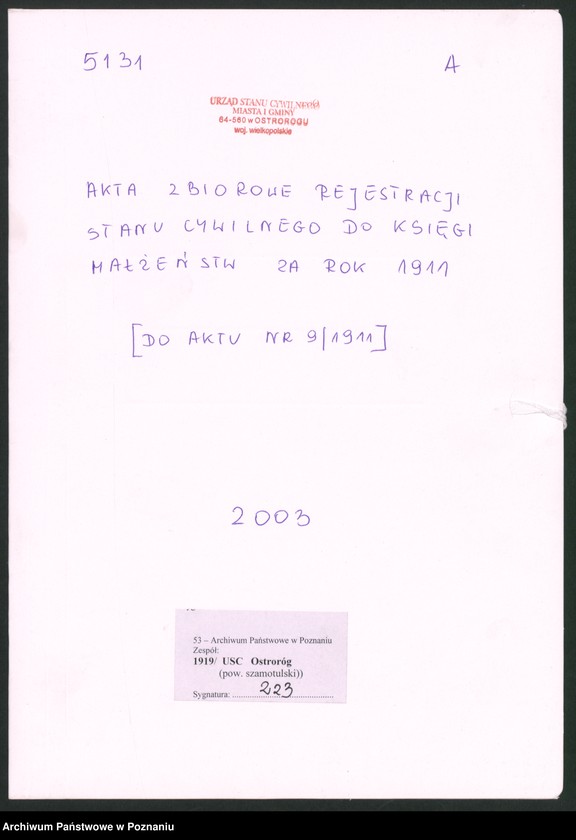 5131 A
URZĄD STANU CYWILNEGO
MIASTA I GMINY
64-560 w OSTROROGU
woj. wielkopolskie
AKTA ZBIOROWE REJESTRACJI
STANU CYWILNEGO DO KSIĘGI
MAŁŻEŃSTW ZA ROK 1911
[DO AKTU NR 9/1911]
2003
53 – Archiwum Państwowe w Poznaniu
Zespół:
1919/ USC Ostroróg
(pow. szamotulski))
Sygnatura: 223
Archiwum Państwowe w Poznaniu